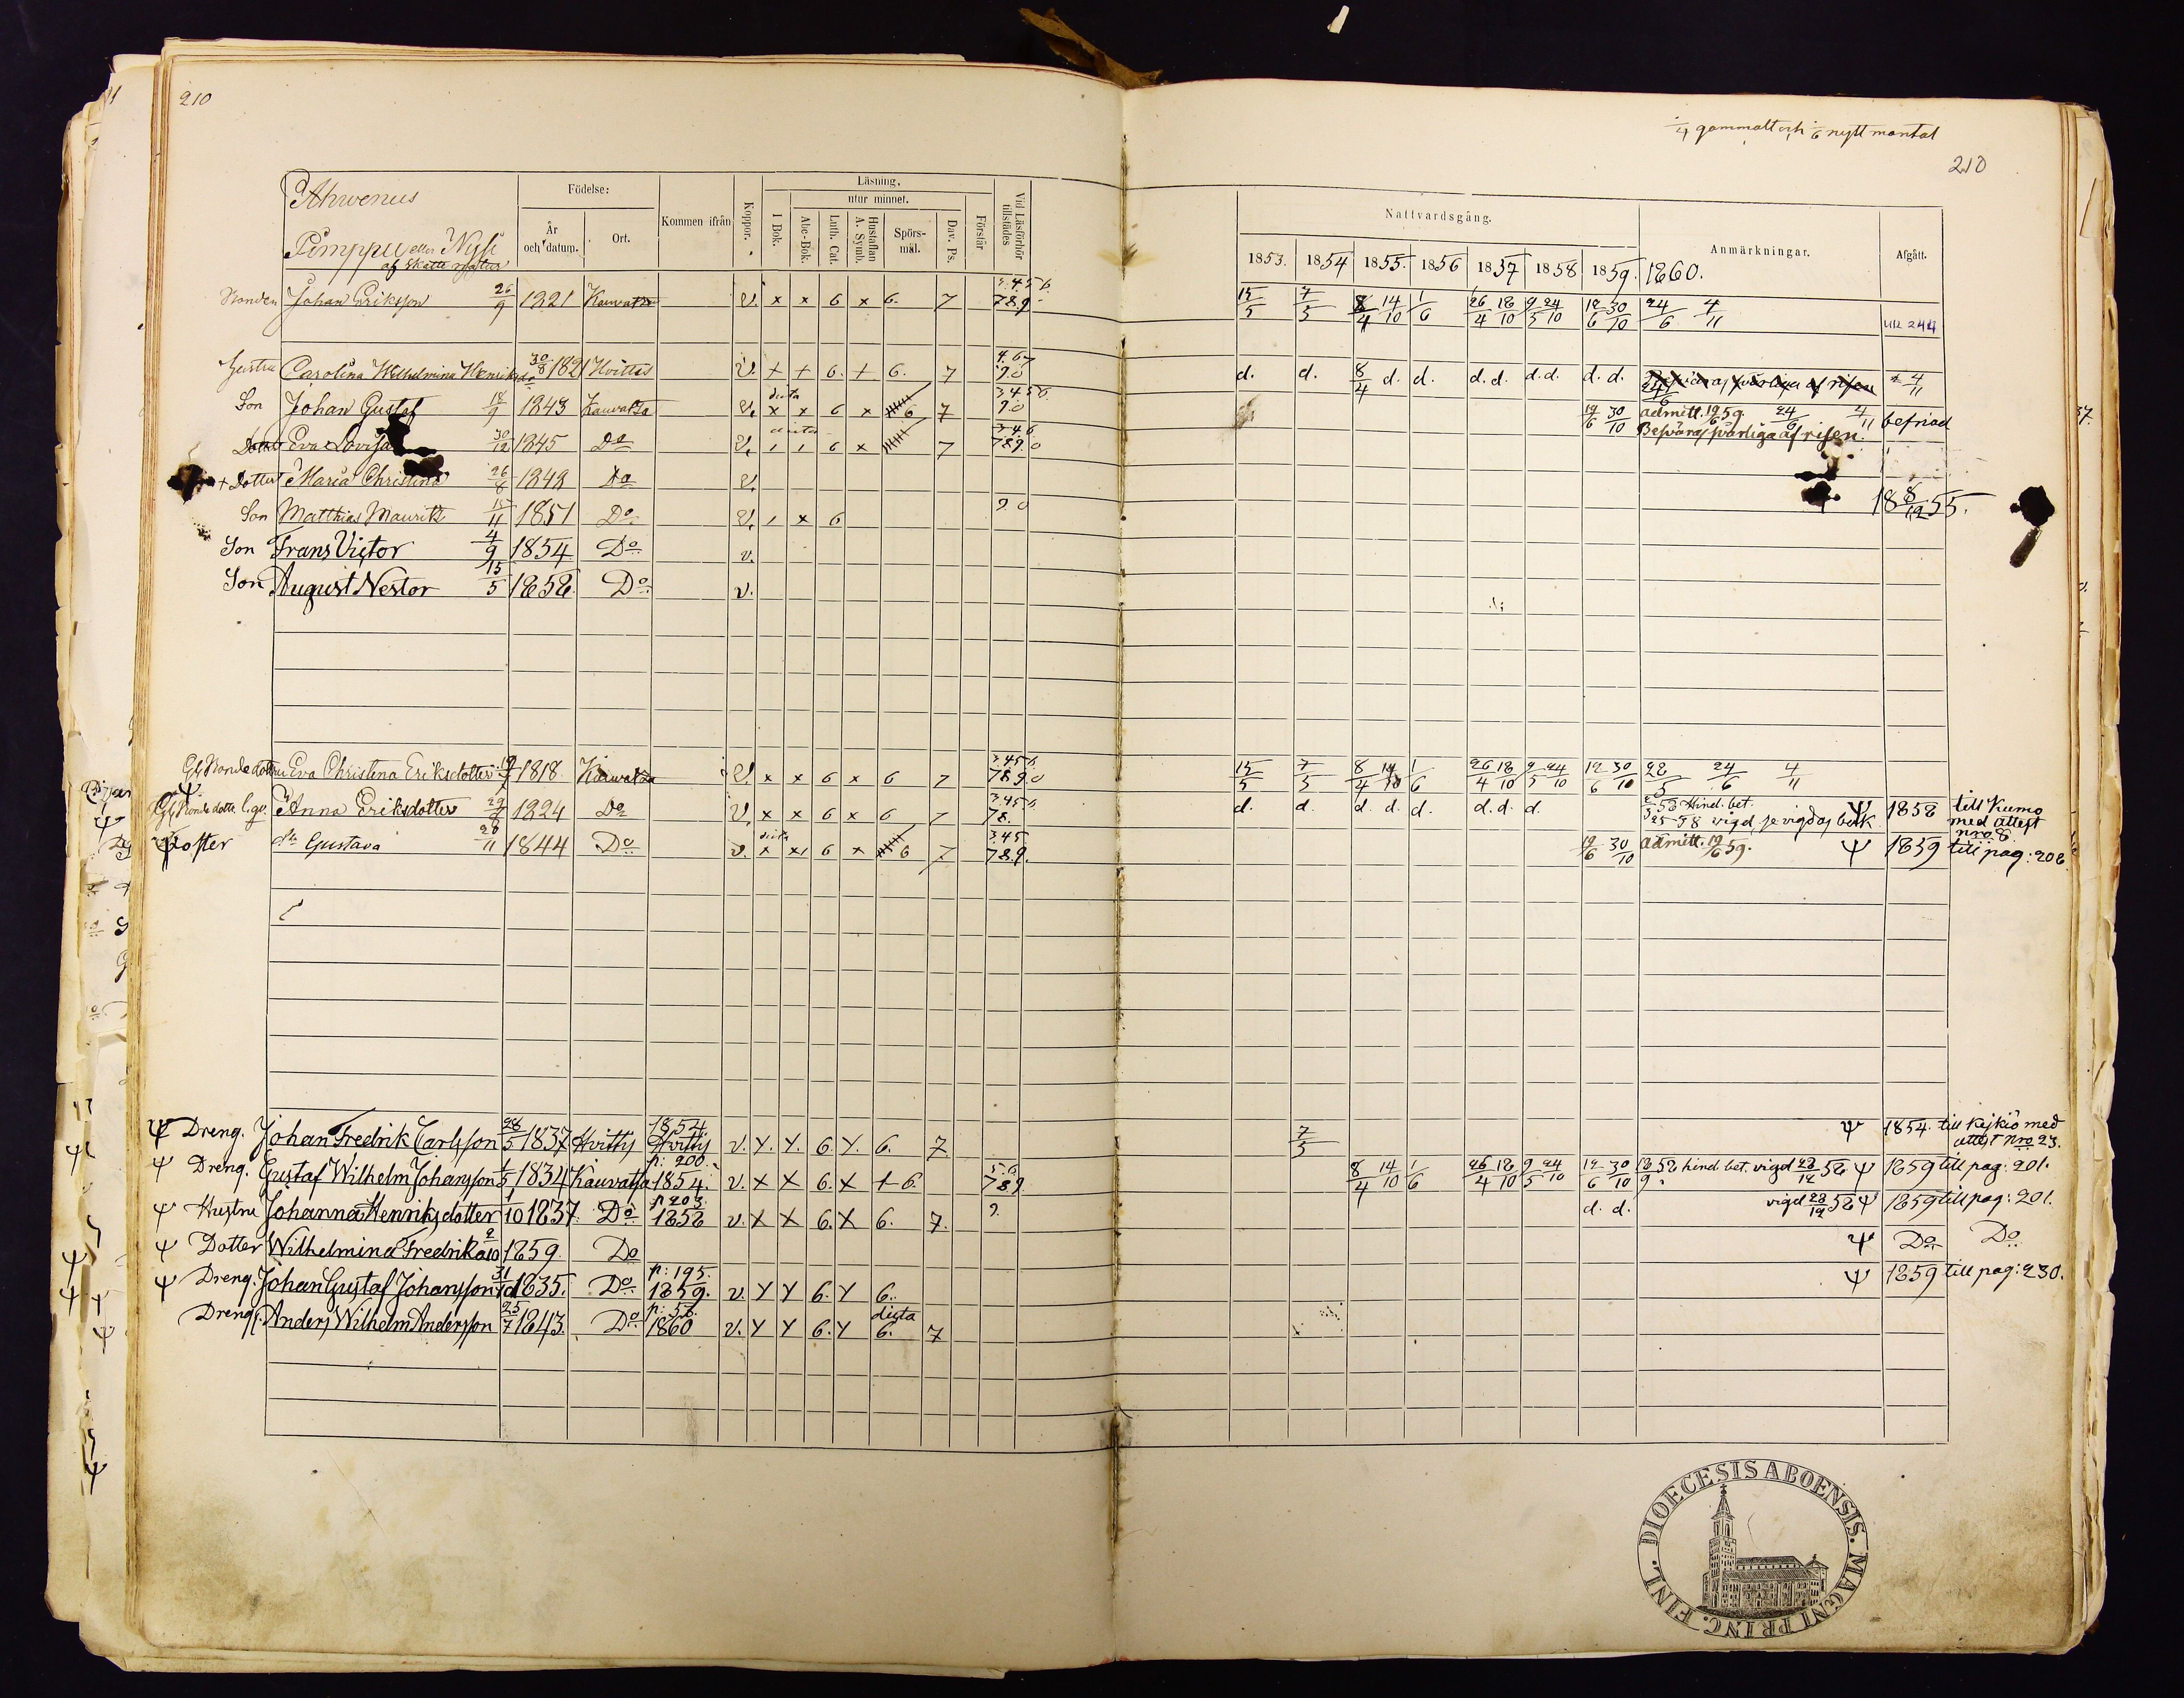 210
1/4 gammalt och 1/6 nytt mantal
210
Ahvenus
Pimppu eller Nysi
af Skatte natur
Födelse:
År och datum.
Ort.
Kommen ifrån
Koppor.
Läsning,
utur minnet.
I Bok.
Abc-Bok.
Luth. Cat.
Hustaflan A. Symb.
Spörs-mål.
Dav. Ps.
Förstår
Vid Läsförhör tillstädes
Nattvardsgång.
1853. 1854 1855. 1856 1857 1858 1859. 1860.
Anmärkningar.
Afgått.
Bonden Johan Eriksson 26/9 1821 Kauvatsa v. x x 6 x 6. 7 3.4.5.6. 7.8.9. 15/5 7/5 8/4 14/10 1/6 26/4 18/10 9/5 24/10 12/6 30/10 24/6 4/11
Hustru Carolina Wilhelmina Henriksdr 30/8 1821 Hvittis v. + + 6. + 6. 7 4.6.7 9 0 d. d. 8/4 d. d. d. d. d. d. d. d. 4/11
Son Johan Gustaf 18/9 1843 Kauvatsa v. dicta x x 6 x 6 7 3 4 5 6. 9 0 19/6 30/10 admitt. 19/6 59. 24/6 4/11 befriad
Besväras svårligen af risen.
Dotter Eva Lovisa 30/12 1845 Do v. 6 x 7 3.4.6 7.8.9. 0
+ Dotter Maria Christina 26/8 1848 Do v. 18 8/12 55.
Son Matthias Maurits 15/11 1851 Do v. x 6 9 0
Son Frans Victor 4/9 1854 Do v.
Son August Nestor 15/5 1858. Do v.
Eva Christina Eriksdotter 1818. Kauvatsa v. x x 6 x 6 7 3.4.5.6. 7.8.9.0 15/5 7/5 8/4 14/10 1/6 26/4 18/10 9/5 24/10 12/6 30/10 24/6 4/11
Anna Eriksdotter 1824 Do v. x x 6 x 6 7 3.4.5.6. 7.8. d. d. d. d. d. d. d. d. Hind. bet. Ψ 1858 till Kumo med attest nro 8.
Ψ Foster Gustava 28/11 1844 Do v. dicta x x 6 x 6 7 3.4.5 7.8.9. 19/6 30/10 admitt. 19/6 59. Ψ 1859 till pag: 208
Ψ Dreng. Johan Fredrik Carlsson 28/5 1837 Hvittis 1854. Hvittis v. Y. Y. 6. Y. 6. 7 7/5 Ψ 1854. till Kjkiö med attest Nro 23.
Ψ Dreng. Gustaf Wilhelm Johansson 1834 Kauvatsa p: 200. 1854. v. x x 6. x + 6. 5.6. 7.8.9 8/4 14/10 1/6 26/4 18/10 9/5 24/10 12/6 30/10 hind. bet. vigd 28/12 58 Ψ 1859 till pag: 201.
Ψ Hustru Johanna Henriksdotter 1/10 1837. Do p 203. 1858 v. x x 6. x 6. 7. 9. d. d. vigd 28/12 58 Ψ 1859 till pag: 201.
Ψ Dotter Wilhelmina Fredrika 9/10 1859. Do Ψ Do Do
Ψ Dreng. Johan Gustaf Johansson 31/10 1835. Do p: 195. 1859. v. Y Y 6. Y 6. Ψ 1859 till pag: 230.
Dreng. Anders Wilhelm Andersson 25/7 1843. Do p: 58. 1860 v. Y Y 6. Y dicta 6. 7
DIOECESIS ABOENSIS. MAGNI PRINC. FINL.